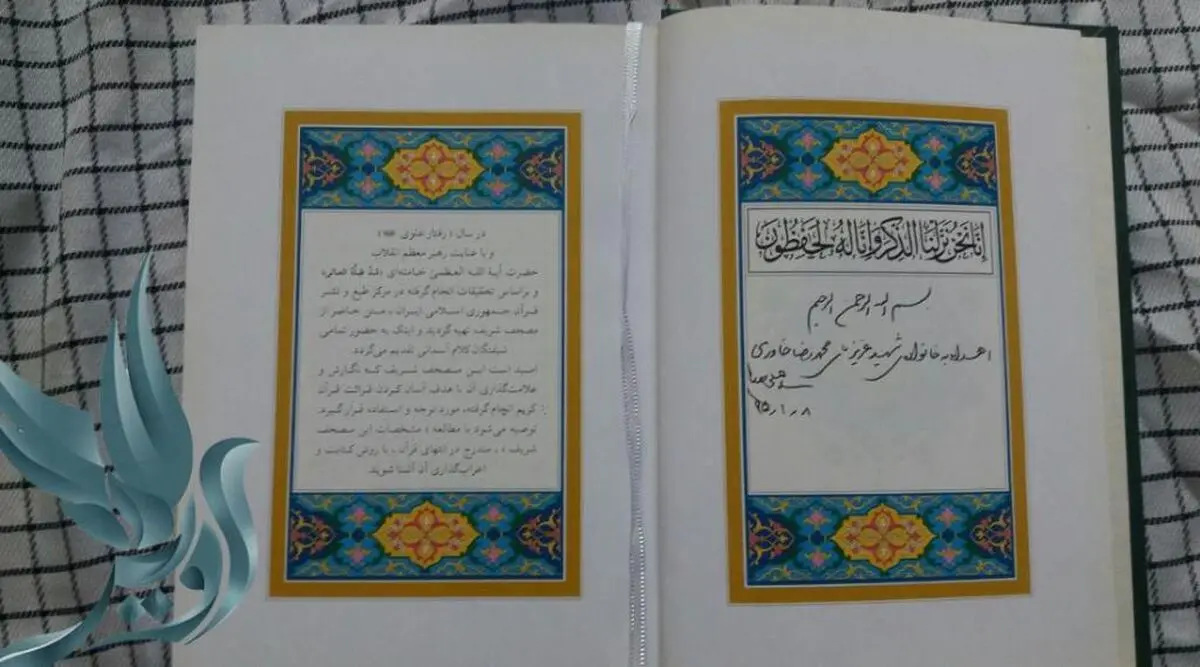 إِنَّا نَحْنُ نَزَّلْنَا الذِّكْرَ وَإِنَّا لَهُ لَحَافِظُونَ
بسم الله الرحمن الرحیم
اهداء به خانواده‌ی شهید عزیز علی محمدرضا خاوری
سید علی خامنه‌ای
۹۵٫۱٫۸
در سال «رفتار علوی»
و با عنایت رهبر معظم انقلاب
حضرت آیة الله العظمیٰ خامنه‌ای (مُدَّ ظِلُّهُ العالی)
و براساس تحقیقات انجام گرفته در مرکز طبع و نشر
قرآن جمهوری اسلامی ایران، متن حاضر از
مصحف شریف تهیه گردید و اینک به حضور تمامی
شیفتگان کلام آسمانی تقدیم می‌گردد.
امید است ایـن مـصحف شریف کـه نگارش و
علامت‌گذاری آن با هدف آسان کردن قرائت قرآن
کریم انجام گرفته، مورد توجه و استفاده قرار گیرد.
توصیه می‌شود با مطالعه «مشخصات این مصحف
شریف»، مندرج در انتهای قرآن، با روش کتابت و
اعراب‌گذاری آن آشنا شوید.